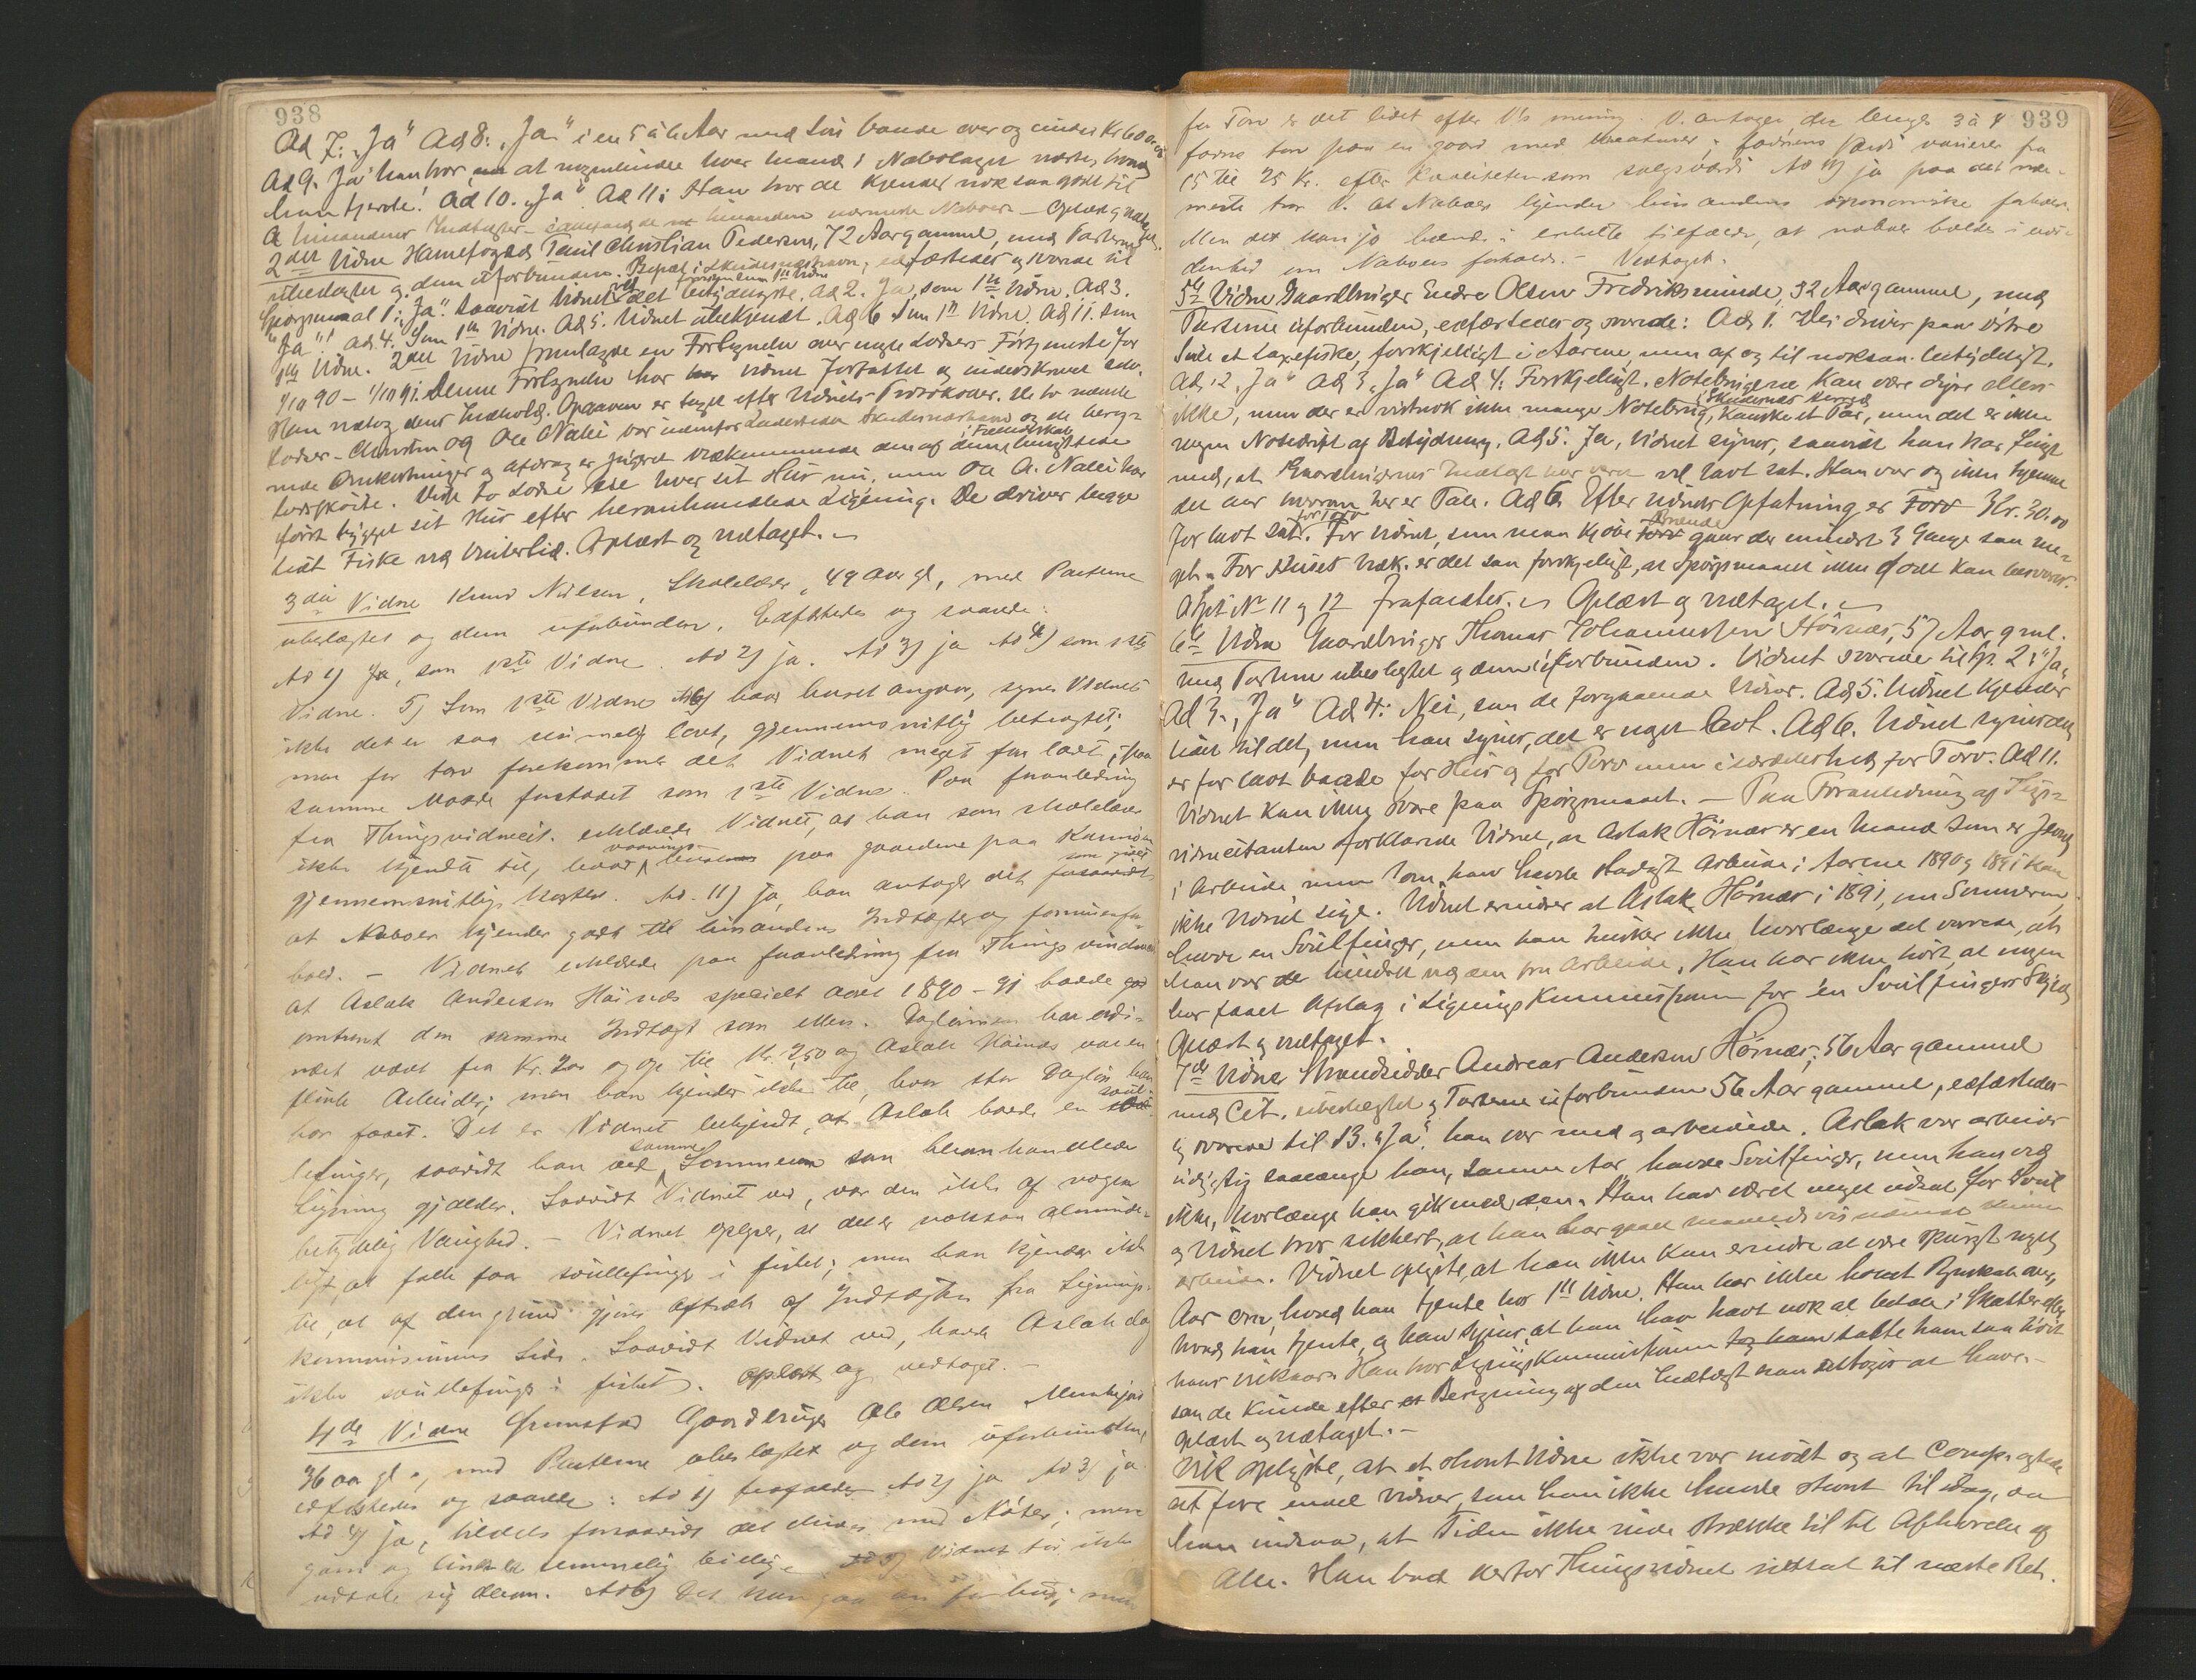 938
Ad 7: "Ja" Ad 8: "Ja" i en 5 à 6 Aar med Lön baade over og under Kr 600
Ad 9. Ja han tror, at nogenlunde hver Mand i Nabolaget vidste, hvad
han tjente! Ad 10. "Ja" Ad 11: Han tror de kjender noksaa godt til
hinandens Indtægter nærmeste Naboer – Oplæst og vedtaget.
2det Vidne Havnefoged Christian Pedersen, 72 Aar gammel, med Parterne
ubeslægtet og dem uforbunden. Bopæl i Skudesneshavn; edfæstedes og svarede til
Spörgsmaal 1: Ja". Saavidt Vidnet ved det betydeligste. Ad 2. Ja, som 1ste Vidne. Ad 3.
"Ja". Ad. 4. Som 1ste Vidne. Ad 5. Vidnet ubekjendt. Ad 6 Som 1ste Vidne. Ad 11. som
1ste Vidne. 2det Vidne fremlagde en Fortegnelse over nogle Lodsers Fortjeneste for
1/10 90 – 1/10 91. Denne Fortegnelse har Vidnet forfattet og underskrevet selv.
Han vedtog dens Indhold. Opgaven er taget efter Vidnets Protokoller. De to nævnte
Lodser – Christen og Ole Nalei var udenfor Skudesneshavn og de bereg-
nede Omkostninger og Afdrag er
lodssköite. Disse to Lodse eie hver sit Hus nu, men Ole A. Nalei har
först bygget sit Hus efter heromhandlede Ligning. De driver begge
lidt Fiske ved Vintertid. Oplæst og vedtaget. –
3die Vidne Knud Nilsen, Skolelærer, 49 Aar gl, med Parterne
ubeslægtet og dem uforbunden. Edfæstedes og svarede:
Ad 1) Ja, som 1ste Vidne. Ad 2) ja. Ad 3) ja Ad 4) som 1ste
Vidne. 5) Som 1ste Vidne Ad 6) hvad huset angaar, synes Vidnet
ikke det er saa urimelig lavt, gjennemsnitlig betragtet;
men for torv forekommer det Vidnet meget for lavt; paa
samme Maade forstaaet som 1ste Vidne. Paa foranledning
fra Thingsvidnecit. erklærede Vidnet, at han som skolelærer
ikke kjendte til, hvad vaanings paa gaardene paa Karmöen
gjennemsnitlig kostede. Ad. 11) Ja, han antager det
at Naboer kjender godt til hinandens Indtægter og formuesfor-
hold. – Vidnet erklærede paa foranledning fra Things vidnecit
at Aslak Andersen Höines specielt aaret 1890 – 91 havde god
omtrent den samme Indtægt som ellers. Daglönnen har ordi-
nært været fra Kr. 2,00 og op til Kr. 2,50 og Aslak Höines var en
flink Arbeider; men han kjender ikke til, hvor stor Daglön han
har faaet. Det er Vidnet bekjendt, at Aslak havde en svul-
lefinger, saavidt han ved samme Sommer som heromhandlede
Ligning gjælder. Saavidt Vidnet ved, var den ikke af nogen
betydelig Varighed. – Vidnet oplyser, at det er noksaa alminde-
ligt, at folk faar svullefinger i fisket; men han kjender ikke
til, at af den grund gjöres aftræk af Indtægten fra Lignings-
kommissionens Side. Saavidt Vidnet ved, havde Aslak da
ikke svullefinger i fisket. Oplæst og vedtaget. –
4de Vidne Grunstad Gaardbruger Ole Olsen
36 aar gl., med Parterne ubeslægtet og dem uforbunden,
edfæstedes og svarede: Ad 1) frafaldes Ad 2) ja Ad 3) ja
Ad 4) ja, tildels forsaavidt det drives med Nöter; men
garn og liner er temmelig billig. Ad 5) Vidnet tör ikke
udtale sig derom. Ad 6) Det kan gaa an for hus; men
939
for Torv er det lidet efter V's mening. V. antager der bruges 3 à 4
favne torv paa en gaard med ; favnens værdi varierer fra
15 til 25 Kr. efter Kvaliteten som salgsværdi Ad 11) ja paa det nær-
meste tror V. at Naboer kjender hinandens økonomiske forhold.
Men det kan jo hænde i enkelte tilfælde, at naboer holdes i uvi-
denhed om Naboers forholde. – Vedtaget.
5te Vidne Gaardbruger Endre Olsen Fredriksminde, 32 Aar gammel, med
Parterne uforbunden, edfæstedes og svarede: Ad 1. Vei driver paa östre
Side et Laxefiske, forskjelligt i Aarene, men af og til noksaa betydeligt.
Ad. 2 "Ja" Ad 3 "Ja" Ad 4: Forskjelligt. Notebrugene kan være dyre ellers
ikke, men der er vistnok ikke mange Notebrug i Skudesnes Herred, kanske et Par, men det er ikke
nogen Notedrift af Betydning. Ad 5. Ja, Vidnet synes, saavidt han har fulgt
med, at Gaardbrugernes Indtægt har været vel lavt sat. Han var og ikke hjemme
det aar hvorom her er Tale. Ad 6. Efter Vidnets Opfatning er Torv Kr. 30.00
for lavt sat for Torv. For Vidnet, som maa kjöbe Brænde gaar der mindst 3 Gange saa me-
get. For Husets Vedk. er det saa forskjelligt, at Spörgsmaalet ikke godt kan besvares.
Spt No 11 og 12 frafaldtes. – Oplæst og vedtaget. –
6te Vidne Gaardbruger Thomas Johannessen Höines, 57 Aar gml.
med Parterne ubeslægtet og dem uforbunden. Vidnet svarede til Sp. 2: "Ja"
Ad 3. "Ja" Ad 4: Nei, som de forgaaende Vidner. Ad 5. Vidnet kjender
lidet til det, men han synes, det er noget lavt. Ad 6. Vidnet synes det
er for lavt baade for Hus og for Torv men i særdeleshed for Torv. Ad 11.
Vidnet kan ikke svare paa Spörgsmaalet. – Paa Foranledning af Things-
vidnecitanten forklarede Vidnet, at Aslak Höines er en Mand som er jevnt
i Arbeide men om han havde stadigt Arbeide i Aarene 1890 og 1891 kan
ikke Vidnet sige. Vidnet erindrer at Aslak Höines i 1891, om Sommeren,
havde en Svulfinger, men han husker ikke hvorlænge det varede, at
han var hindret ved den fra Arbeide. Han har ikke hört, at nogen
har faaet Afslag i Ligningskommissionen for en Svulfingers Skyld
Oplæst og vedtaget.
7de Vidne Strandsidder Andreas Andersen Höines, 56 Aar gammel
med Cit. ubeslægtet og Parterne uforbunden 56 Aar gammel, edfæstedes
og svarede til 13. "Ja". han var med og arbeidede. Aslak var arbeids
udygtig saalænge han, samme Aar, havde Svulfinger, men han ved
ikke, hvorlænge han gik med den. Han har været meget udsat for Svul
og Vidnet tror sikkert, at han har gaaet maanedsvis
arbeide. Vidnet oplyste, at han ikke kan erindre at være spurgt noget
Aar om, hvad han tjente hos 1ste Vidne. Han har ikke havt Regnskab over,
hvad han tjente, og han synes, at han har havt nok at betale i Skatter efter
hans Vilkaar. Han tror Ligningskommissionen satte ham saa höit
som de kunde efter Beregning af den Indtægt man antager at have. –
Oplæst og vedtaget. –
Vik oplyste, at et stevnt Vidne ikke var mödt og at Comp. agtede
at före endel Vidner, som han ikke havde stevnt til idag, da
han indsaa, at Tiden ikke vilde strække til til Afhörelse af
Alle. Han bad derfor Thingsvidnet udsat til næste Ret.